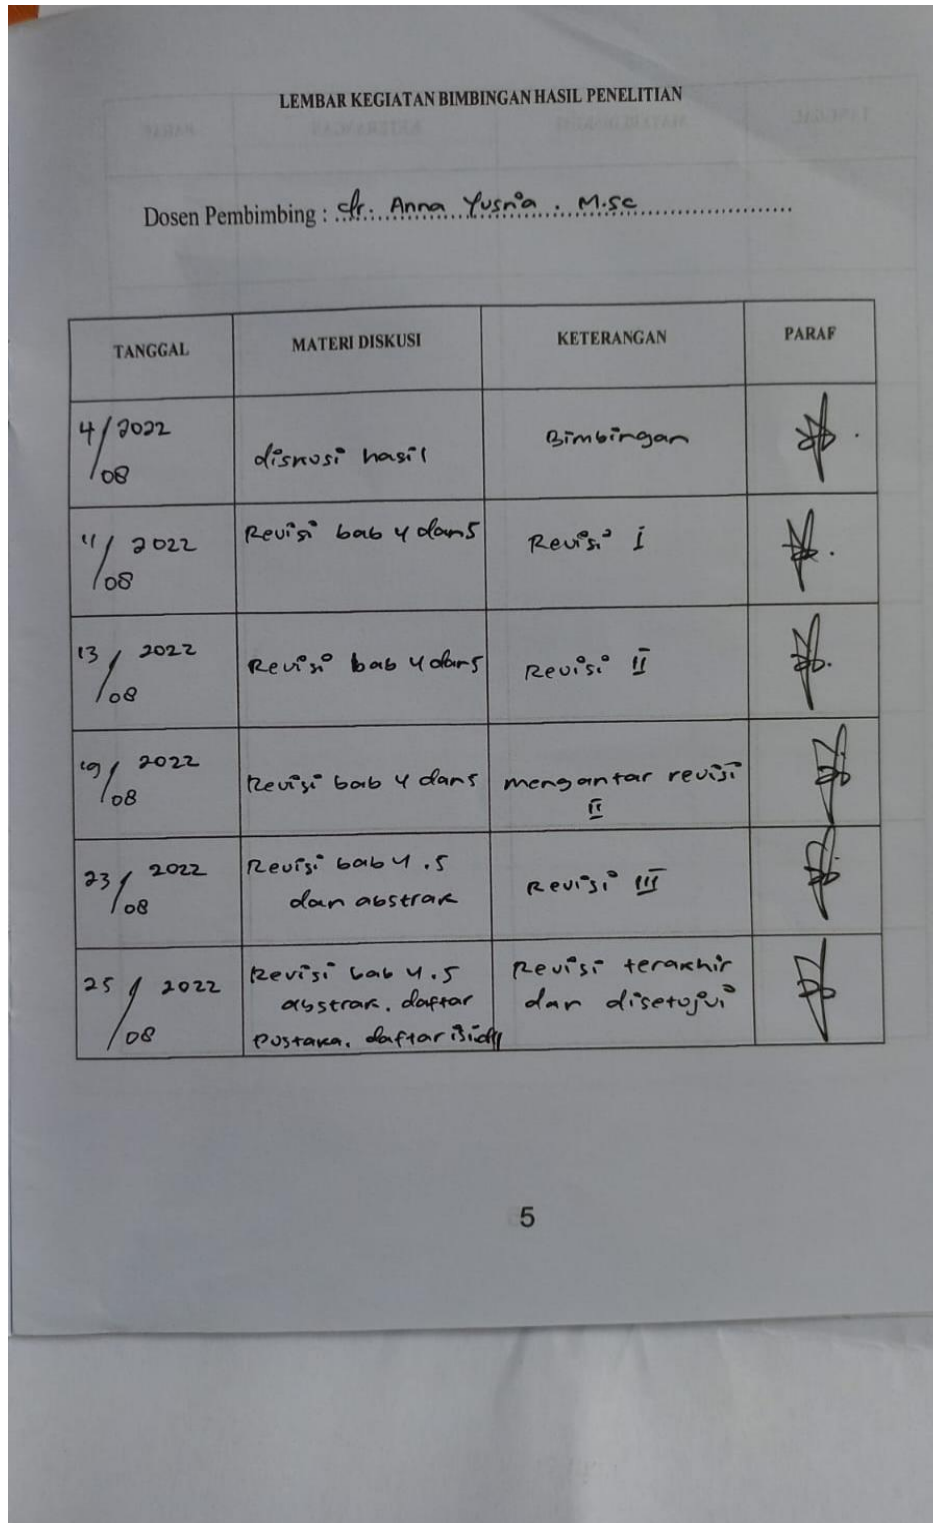 LEMBAR KEGIATAN BIMBINGAN HASIL PENELITIAN
Dosen Pembimbing : dr. Anna Yusnia . M.Sc
TANGGAL MATERI DISKUSI KETERANGAN PARAF
4/2022
/08
diskusi hasil
Bimbingan
11/ 2022
/08
Revisi bab 4 dan 5
Revisi I
13/ 2022
/08
Revisi bab 4 dan 5
Revisi II
19/ 2022
/08
Revisi bab 4 dan 5
mengantar revisi
II
23/ 2022
/08
Revisi bab 4 . 5
dan abstrak
Revisi III
25/ 2022
/08
Revisi bab 4 . 5
abstrak. daftar
pustaka. daftar isi
Revisi terakhir
dan disetujui
5